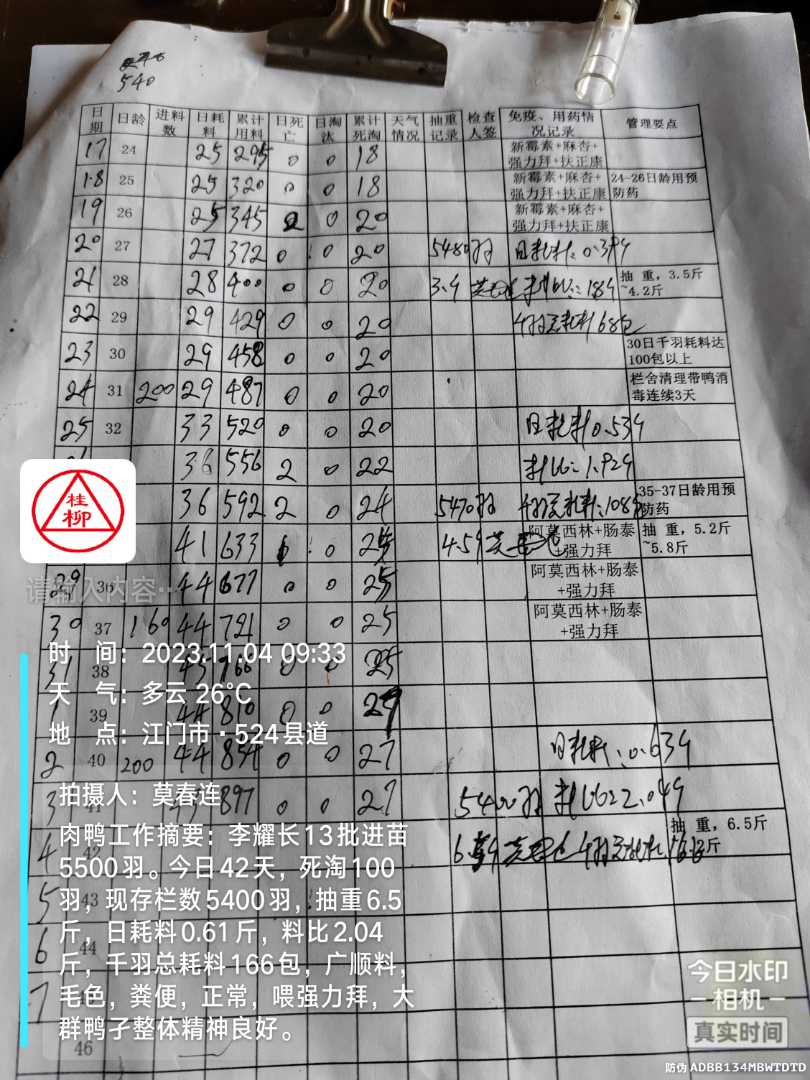 540
日期 日龄 进料数 日耗料 累计用料 日死亡 日淘汰 累计死淘 天气情况 抽重记录 检查人签 免疫、用药情况记录 管理要点
17 24 25 295 0 0 18 新霉素+麻杏+强力拜+扶正康
18 25 25 320 0 0 18 新霉素+麻杏+强力拜+扶正康 24-26日龄用预防药
19 26 25 345 2 0 20 新霉素+麻杏+强力拜+扶正康
20 27 27 372 0 0 20 5480羽 日耗料:0.39斤
21 28 28 400 0 0 20 3.9 料比:1.89 抽 重，3.5斤~4.2斤
22 29 29 429 0 0 20 千羽总耗料68包
23 30 29 458 0 0 20 30日千羽耗料达100包以上
24 31 200 29 487 0 0 20 栏舍清理带鸭消毒连续3天
25 32 33 520 0 0 20 日耗料0.53斤
36 556 2 0 22 料比=1.92
36 592 2 0 24 5470羽 千羽总耗料:108 35-37日龄用预防药
41 633 1 0 25 4.59 阿莫西林+肠泰+强力拜 抽 重，5.2斤~5.8斤
29 36 44 677 0 0 25 阿莫西林+肠泰+强力拜
30 37 160 44 721 0 0 25 阿莫西林+肠泰+强力拜
31 38 0 0 25
1 39 44 810 0 0 27
2 40 200 44 854 0 0 27 日耗料:0.63斤
3 897 0 0 27 5400羽 料比=2.04
4 42 抽 重，6.5斤
5 43
6 44
7
46
桂柳
请输入内容…
时 间：2023.11.04 09:33
天 气：多云 26℃
地 点：江门市·524县道
拍摄人：莫春连
肉鸭工作摘要：李耀长13批进苗
5500羽。今日42天，死淘100
羽，现存栏数5400羽，抽重6.5
斤，日耗料0.61斤，料比2.04
斤，千羽总耗料166包，广顺料，
毛色，粪便，正常，喂强力拜，大
群鸭子整体精神良好。
今日水印
相机
真实时间
防伪 ADBB134MBWTDTD